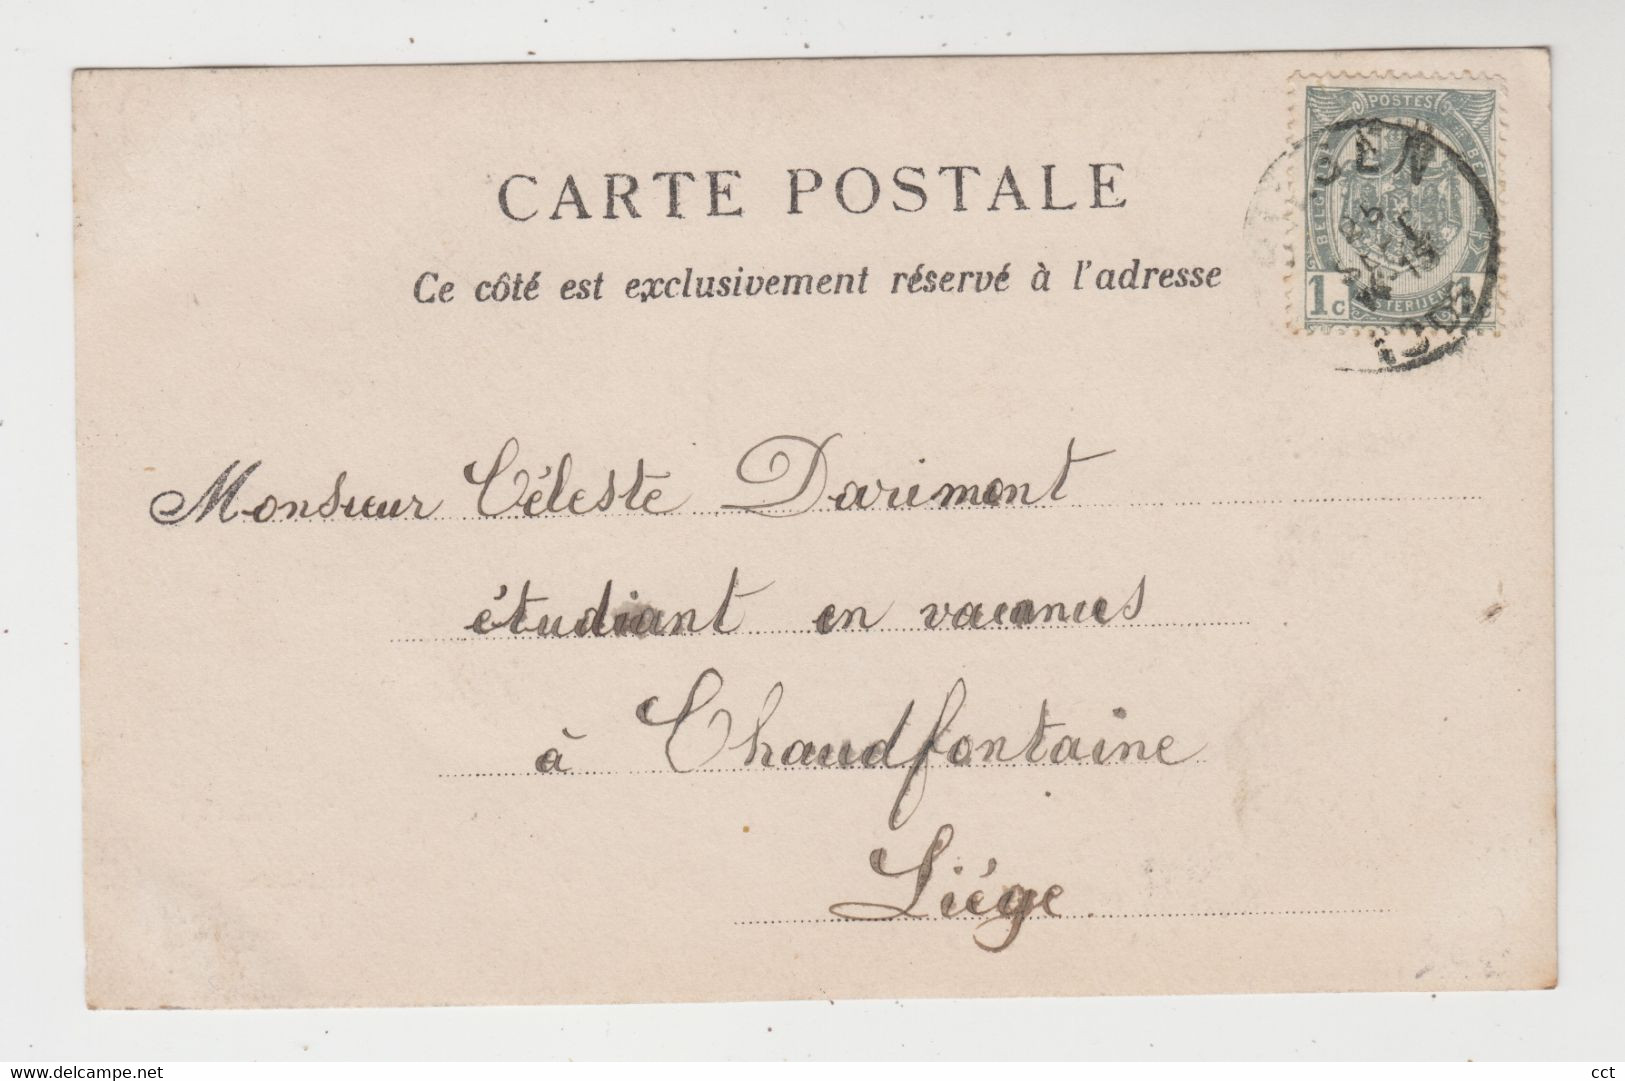 CARTE POSTALE
Ce côté est exclusivement réservé à l'adresse
POSTES
1c
1c
Monsieur Céleste Darimont
étudiant en vacances
à Chaudfontaine
Liége
delcampe.net
cct